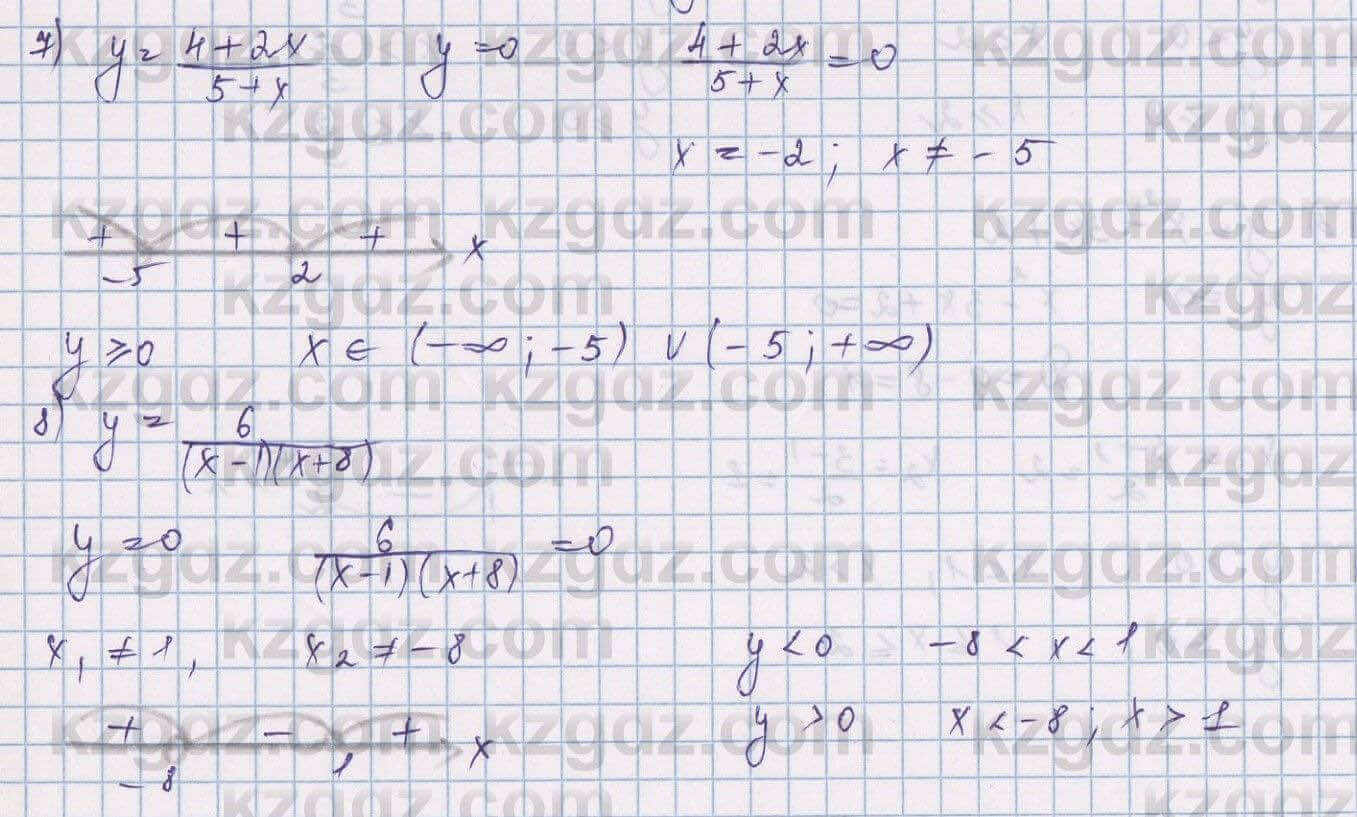 7) y = (4+2x)/(5+x)   y=0   (4+2x)/(5+x) = 0
x = -2; x ≠ -5
+ + + x
-5 2
y ≥ 0   x ∈ (-∞; -5) ∨ (-5; +∞)
8) y = 6/((x-1)(x+8))
y = 0   6/((x-1)(x+8)) = 0
x₁ ≠ 1,   x₂ ≠ -8   y < 0   -8 < x < 1
+ - + x   y > 0   x < -8; x > 1
-8 1
kzgdz.com